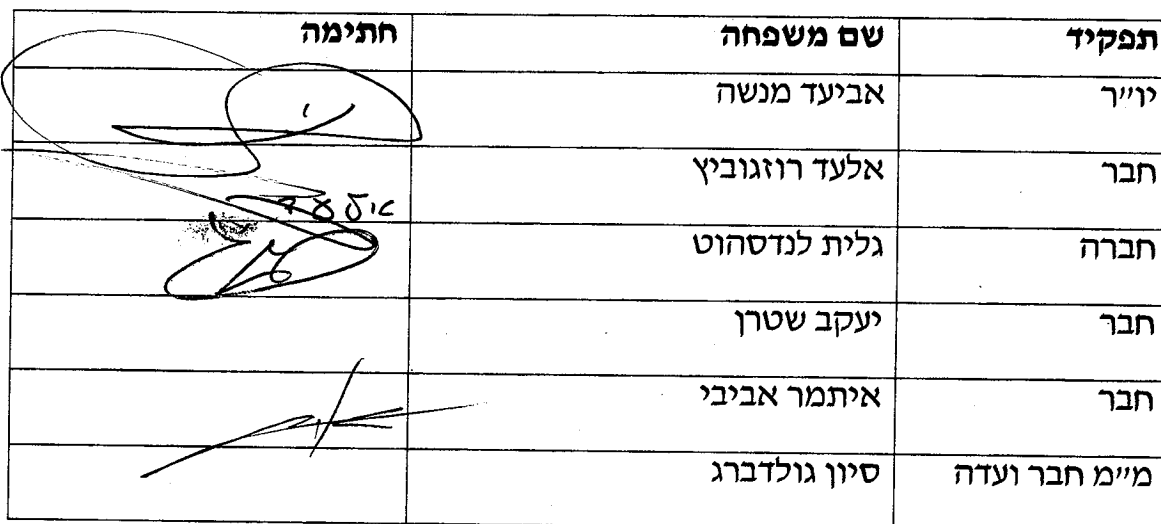 תפקיד שם משפחה חתימה
יו״ר אביעד מנשה
חבר אלעד רוזגוביץ
חברה גלית לנדסהוט
חבר יעקב שטרן
חבר איתמר אביבי
מ״מ חבר ועדה סיון גולדברג